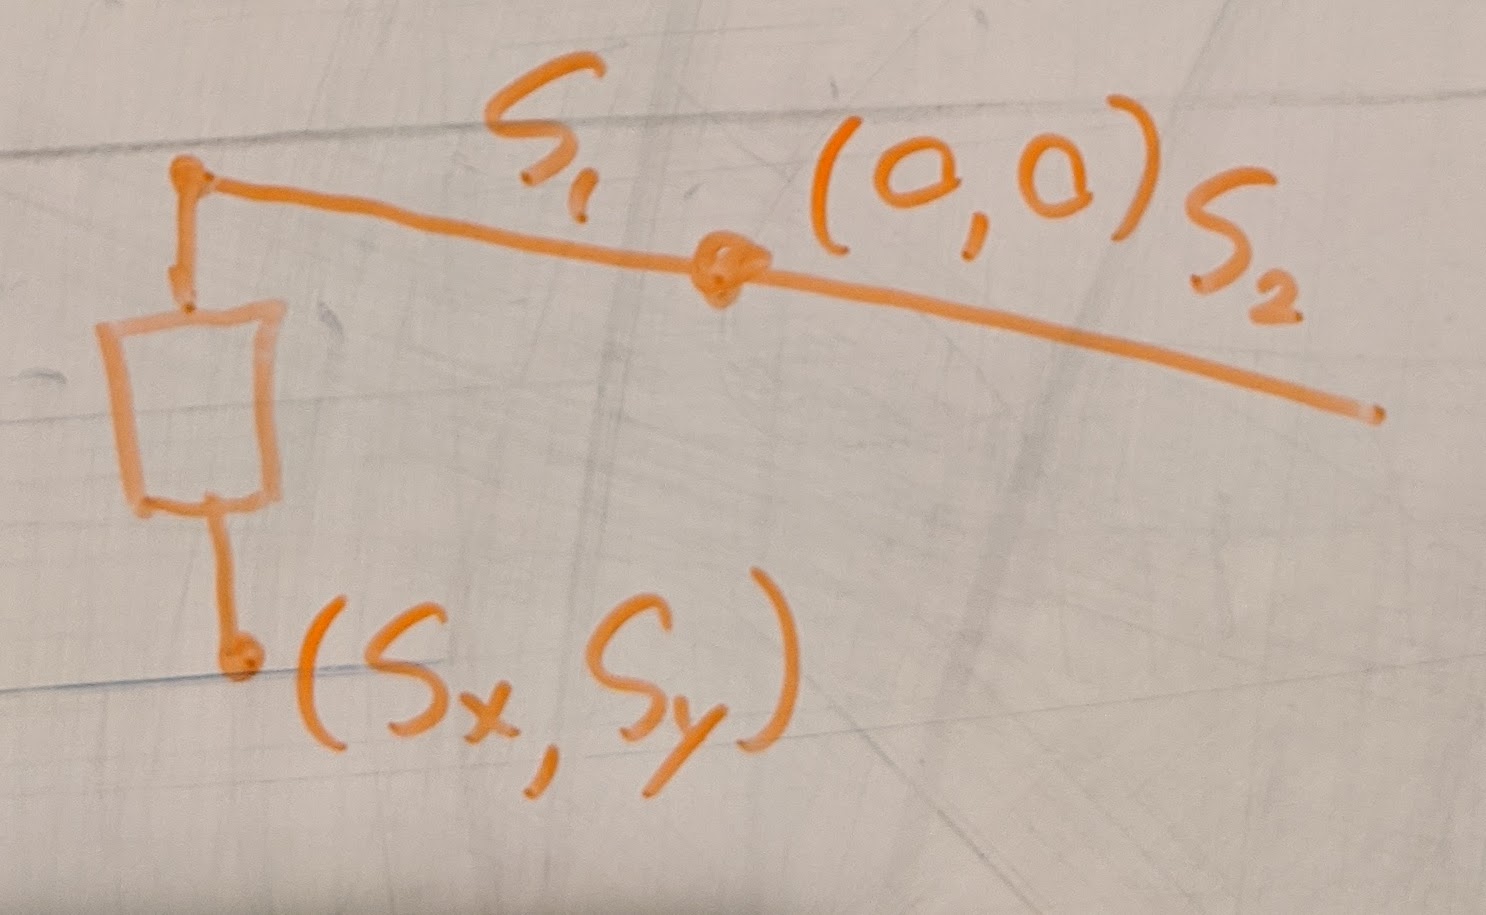 S₁
(0,0)
S₂
(Sx, Sy)